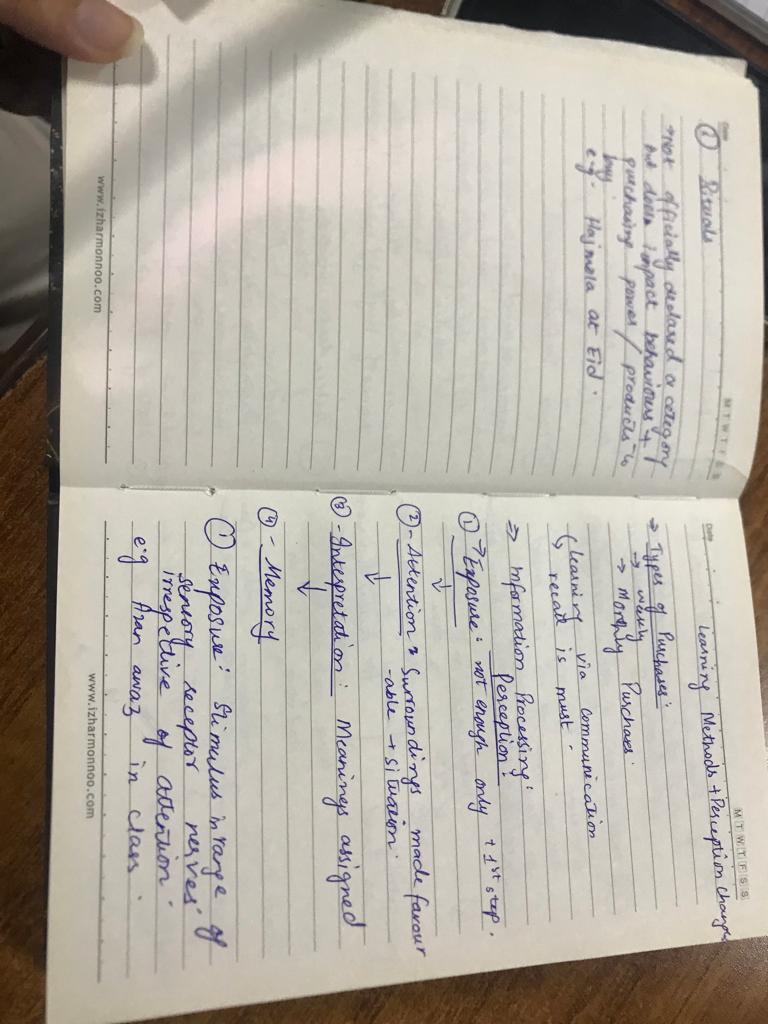 Date
M T W T F S S
② Rituals
→ Not officially declared a category
but does impact behaviours +
purchasing power / products to
buy.
e-g- Hajmola at Eid.
www.izharmonnoo.com
M T W T F S S
Date
Learning Methods + Perception Changes
→ Types of Purchases:
→ weekly
→ Monthly Purchases.
Learning via communication
↳ recall is must.
⇒ Information Processing:
Perception:
① → Exposure: not enough only + 1st step.
↓
② - Attention: Surroundings made favour
-able → situation.
↓
③ - Interpretation: Meanings assigned
↓
④ - Memory
① Exposure: Stimulus in range of
sensory receptor nerves
irrespective of attention.
e.g Azan awaz in class.
www.izharmonnoo.com